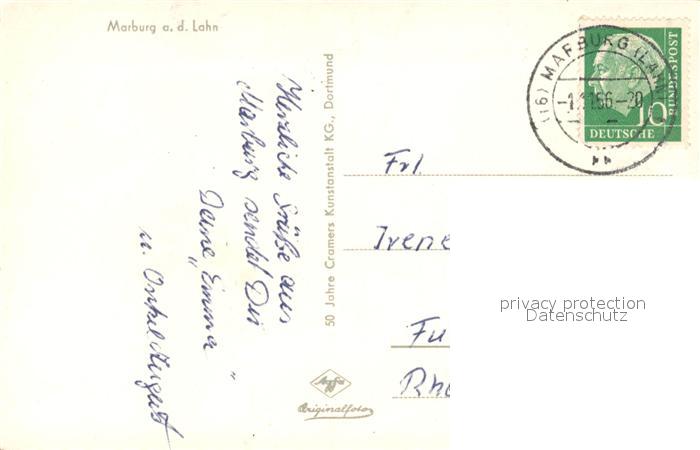 Marburg a. d. Lahn
Herzliche Grüße aus
Marburg sendet Dir
Deine „Emma“
u. Onkel August
50 Jahre Cramers Kunstanstalt KG., Dortmund
Agfa
Originalfoto
(16) MARBURG (LAHN)
66-20
10
DEUTSCHE
BUNDESPOST
Frl.
Irene
Fu
Rho
privacy protection
Datenschutz